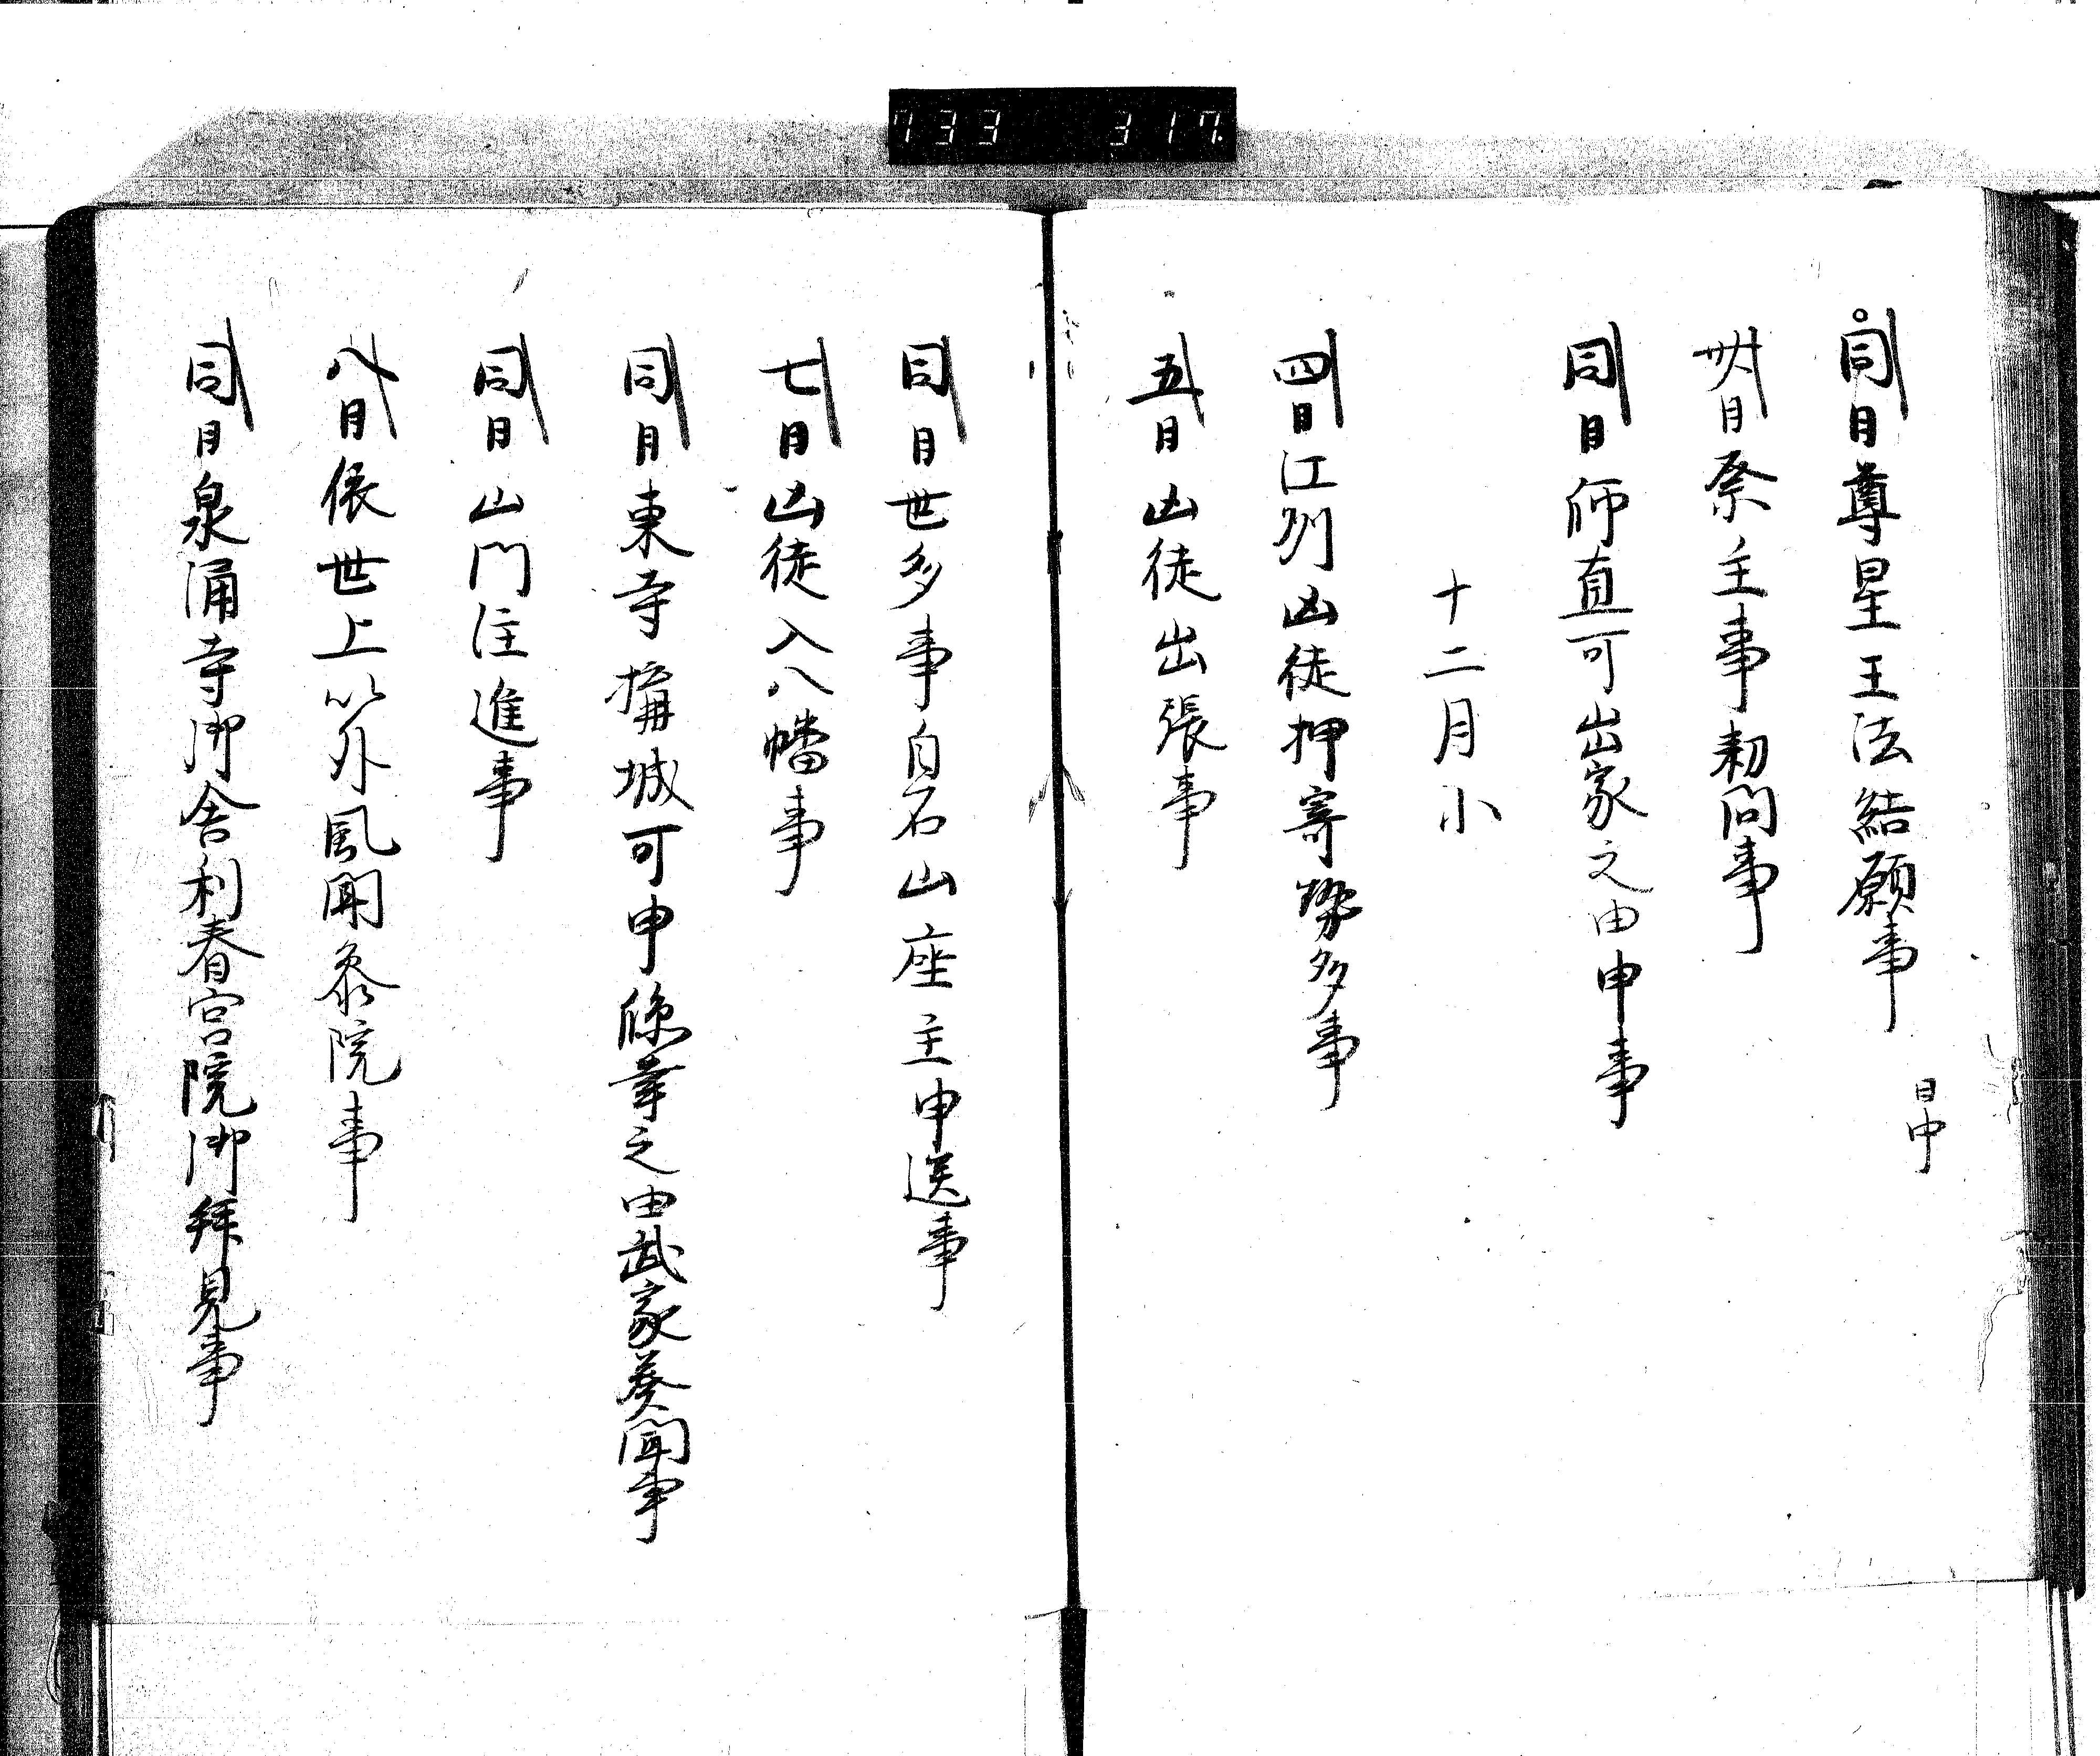 733 317
同日尊星王法結願事 日中
卅日祭主事勅問事
同日師直可出家之由申事
十二月小
四日江列凶徒押寄勢多事
五日凶徒出張事
同日世多事自石山座主申送事
七日凶徒入八幡事
同日東寺構城可申臨幸之由武家奏聞事
同日山門注進事
八日依世上以外風聞参院事
同日泉涌寺御舎利春宮院御拜見事